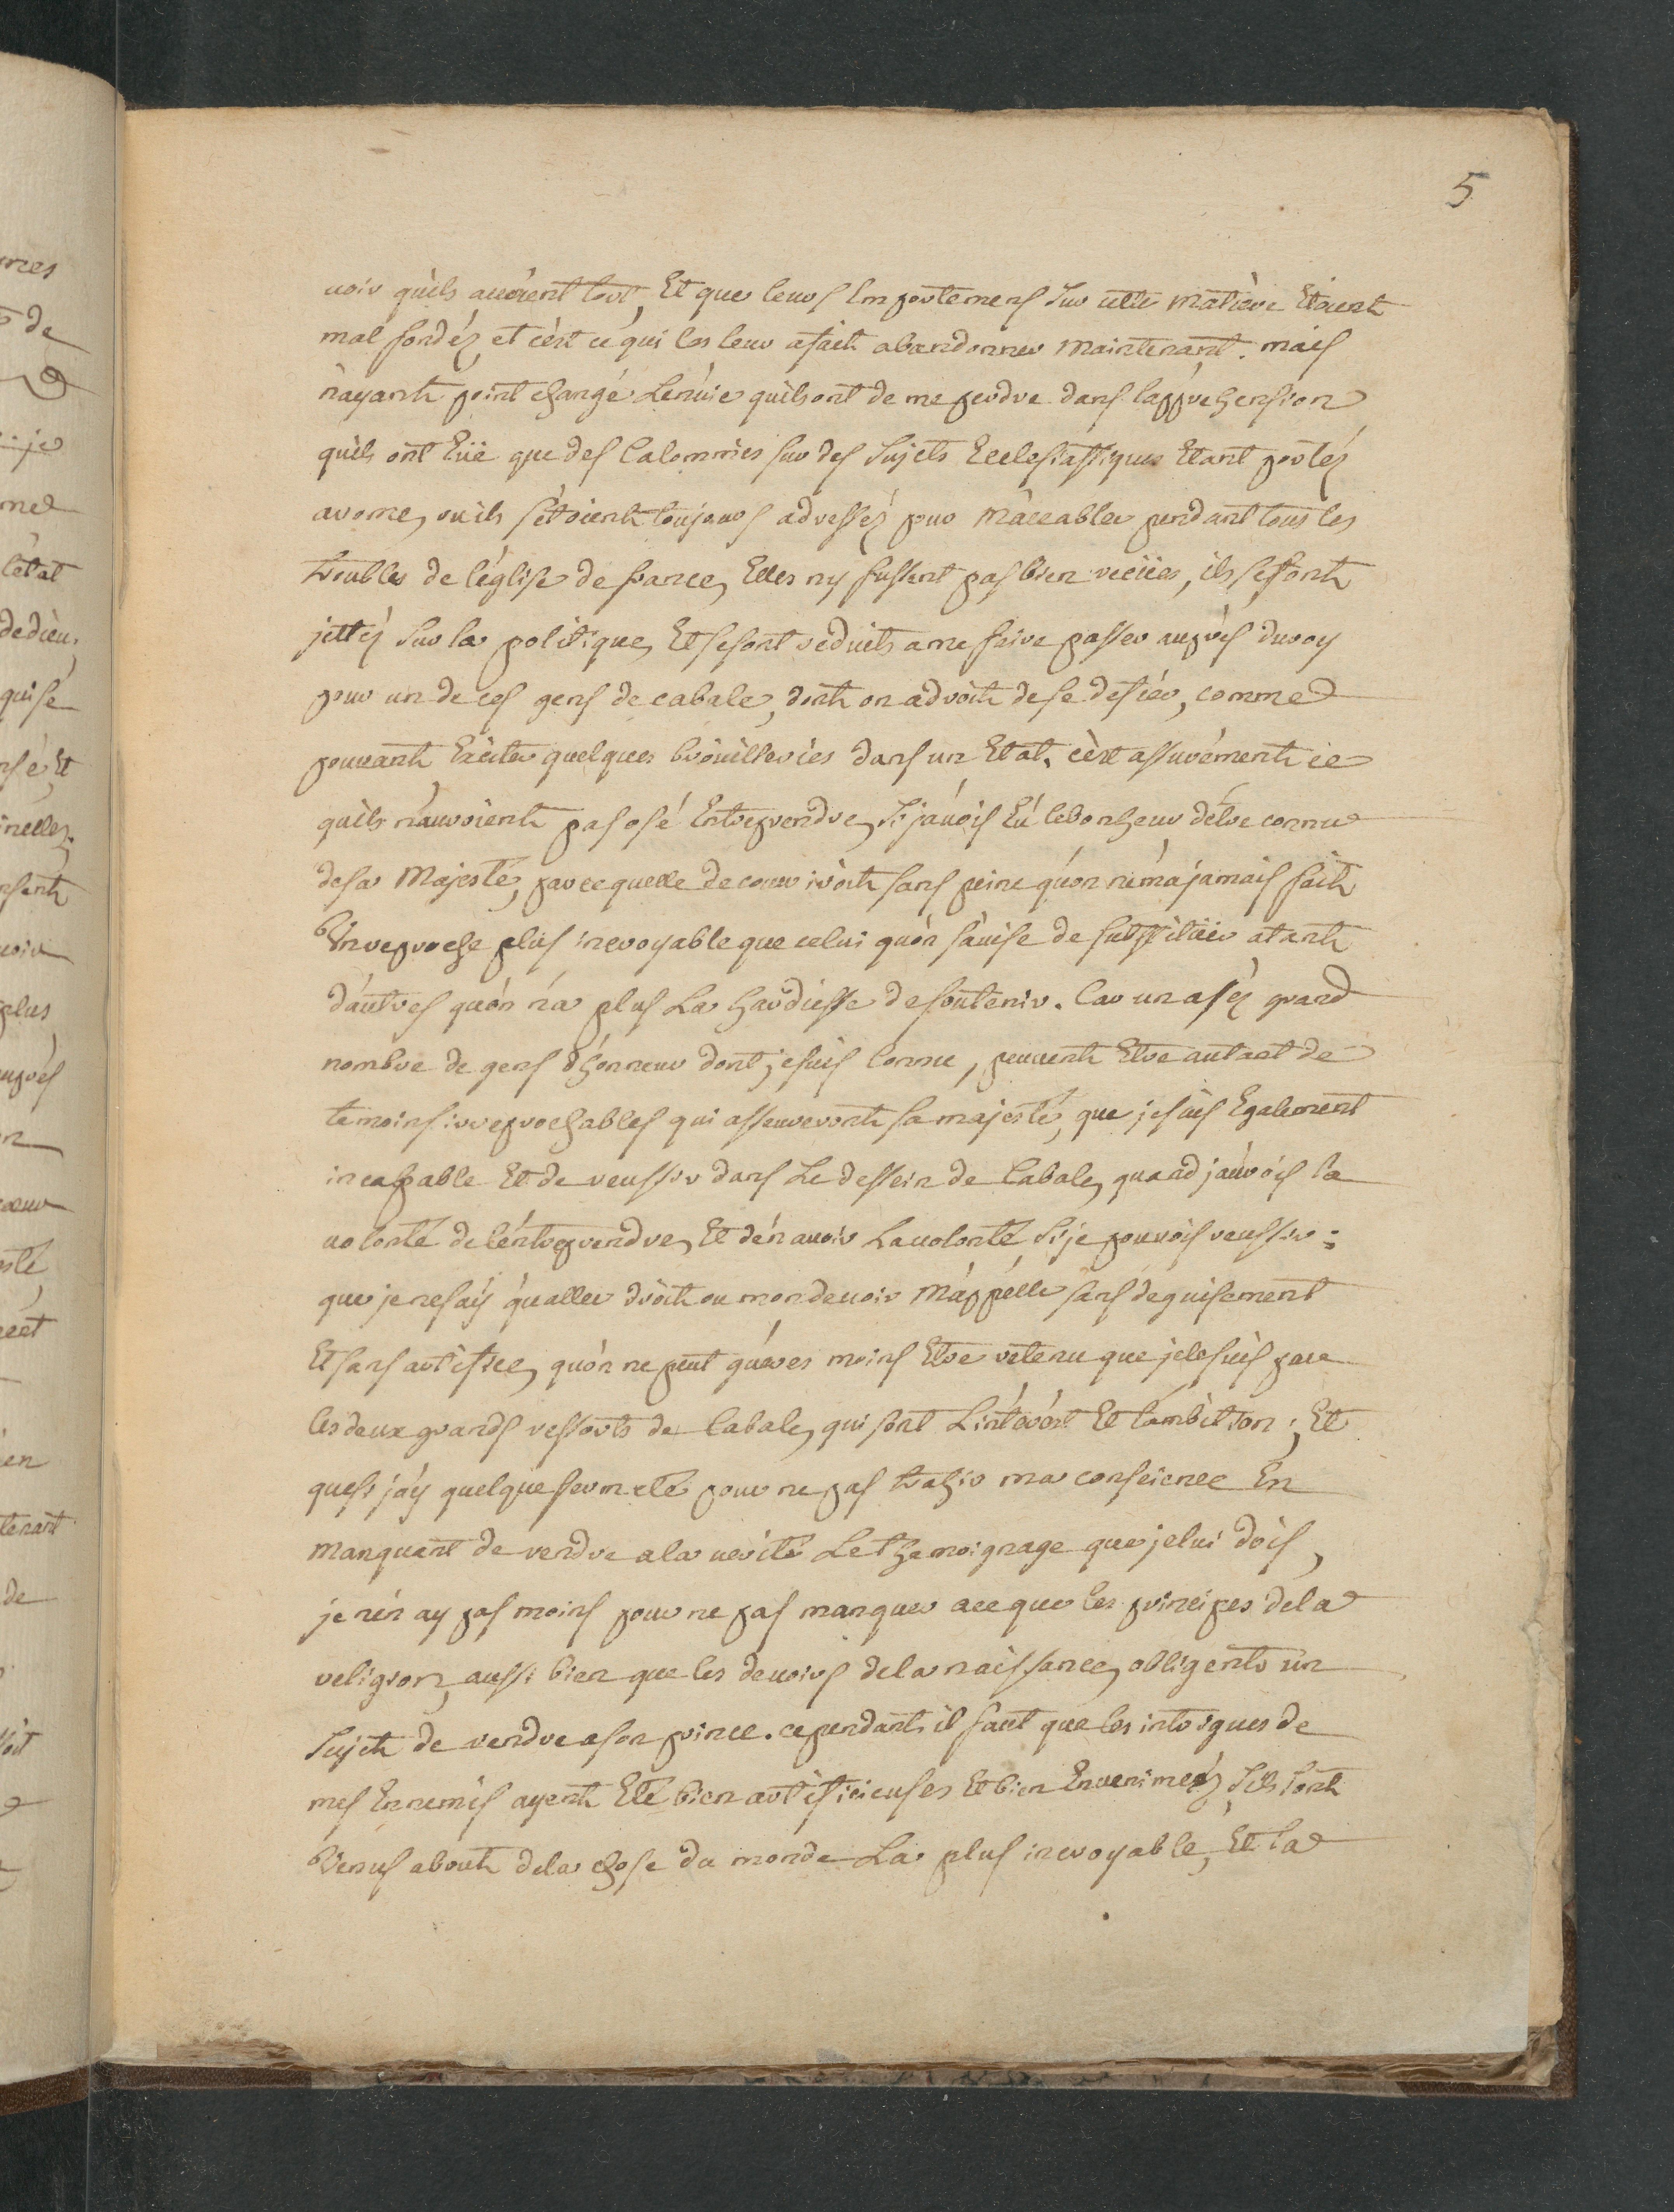 5
uoir quils auoient tort, Et que leurs Emportemens Sur cette matiére Etoient
mal fondéz et c'est ce qui les leur afait abandonner maintenant. mais
n'ayant point changé Lenuie quils ont de me perdre dans l'apprehension
quils ont Eüe que des Calomnies sur des Sujets Ecclesiastiques Etant portéz
a rome, ou ils s'étoient toujours adresséz pour m'accabler pendant tous les
troubles de l'église de france, Elles ny fussent pas bien reciies, ils se sont
jettéz Sur la politique, Et se sont réduits a me faire passer auprés du roy
pour un de ces gens de cabale, dont on a droit de se defiér, comme
pouuant Exciter quelques broüilleries dans un Etat. c'est assurément ce
quils n'auroient pas osé Entreprendre, Si j'auois Eû le bonheur d'étre connu
de sa Majesté, parce quelle decouuriroit sans peine qu'on ne m'a jamais fait
Un reproche plus incroyable que celui qu'on s'auise de substitüer a tant
d'autres qu'on n'a plus La hardiesse de soutenir. Car un aséz grand
nombre de gens d'honneur dont je suis Connu, peuuent Etre autant de
temoins irreprochables qui assureront sa majesté, que je suis Egalement
incapable Et de reussir dans Le dessein de Cabale, quand j'aurois la
uolonté de l'éntreprendre, Et d'én auoir La uolonté, Si je pouuois reussir:
que je ne sais qu'aller droit ou mon deuoir m'appélle sans déguisement
Et sans artifice, qu'on ne peut guéres moins Etre retenu que je le suis par
les deux grands ressorts de Cabale, qui sont L'intérést Et l'ambition; Et
que si j'ay quelque fermeté pour ne pas trahir ma conscience En
manquant de rendre a la uerité Le thémoignage que je lui dois,
je n'én ay pas moins pour ne pas manquer a ce que les principes de la
religion, aussi bien que les deuoirs de la naissance, obligent un
Sujet de rendre a son prince. cependant il faut que les intrigues de
mes Ennemis ayent Eté bien artificieuses Et bien Enuenimeés, S'ils sont
Venus about de la chose du monde La plus incroyable, Et la